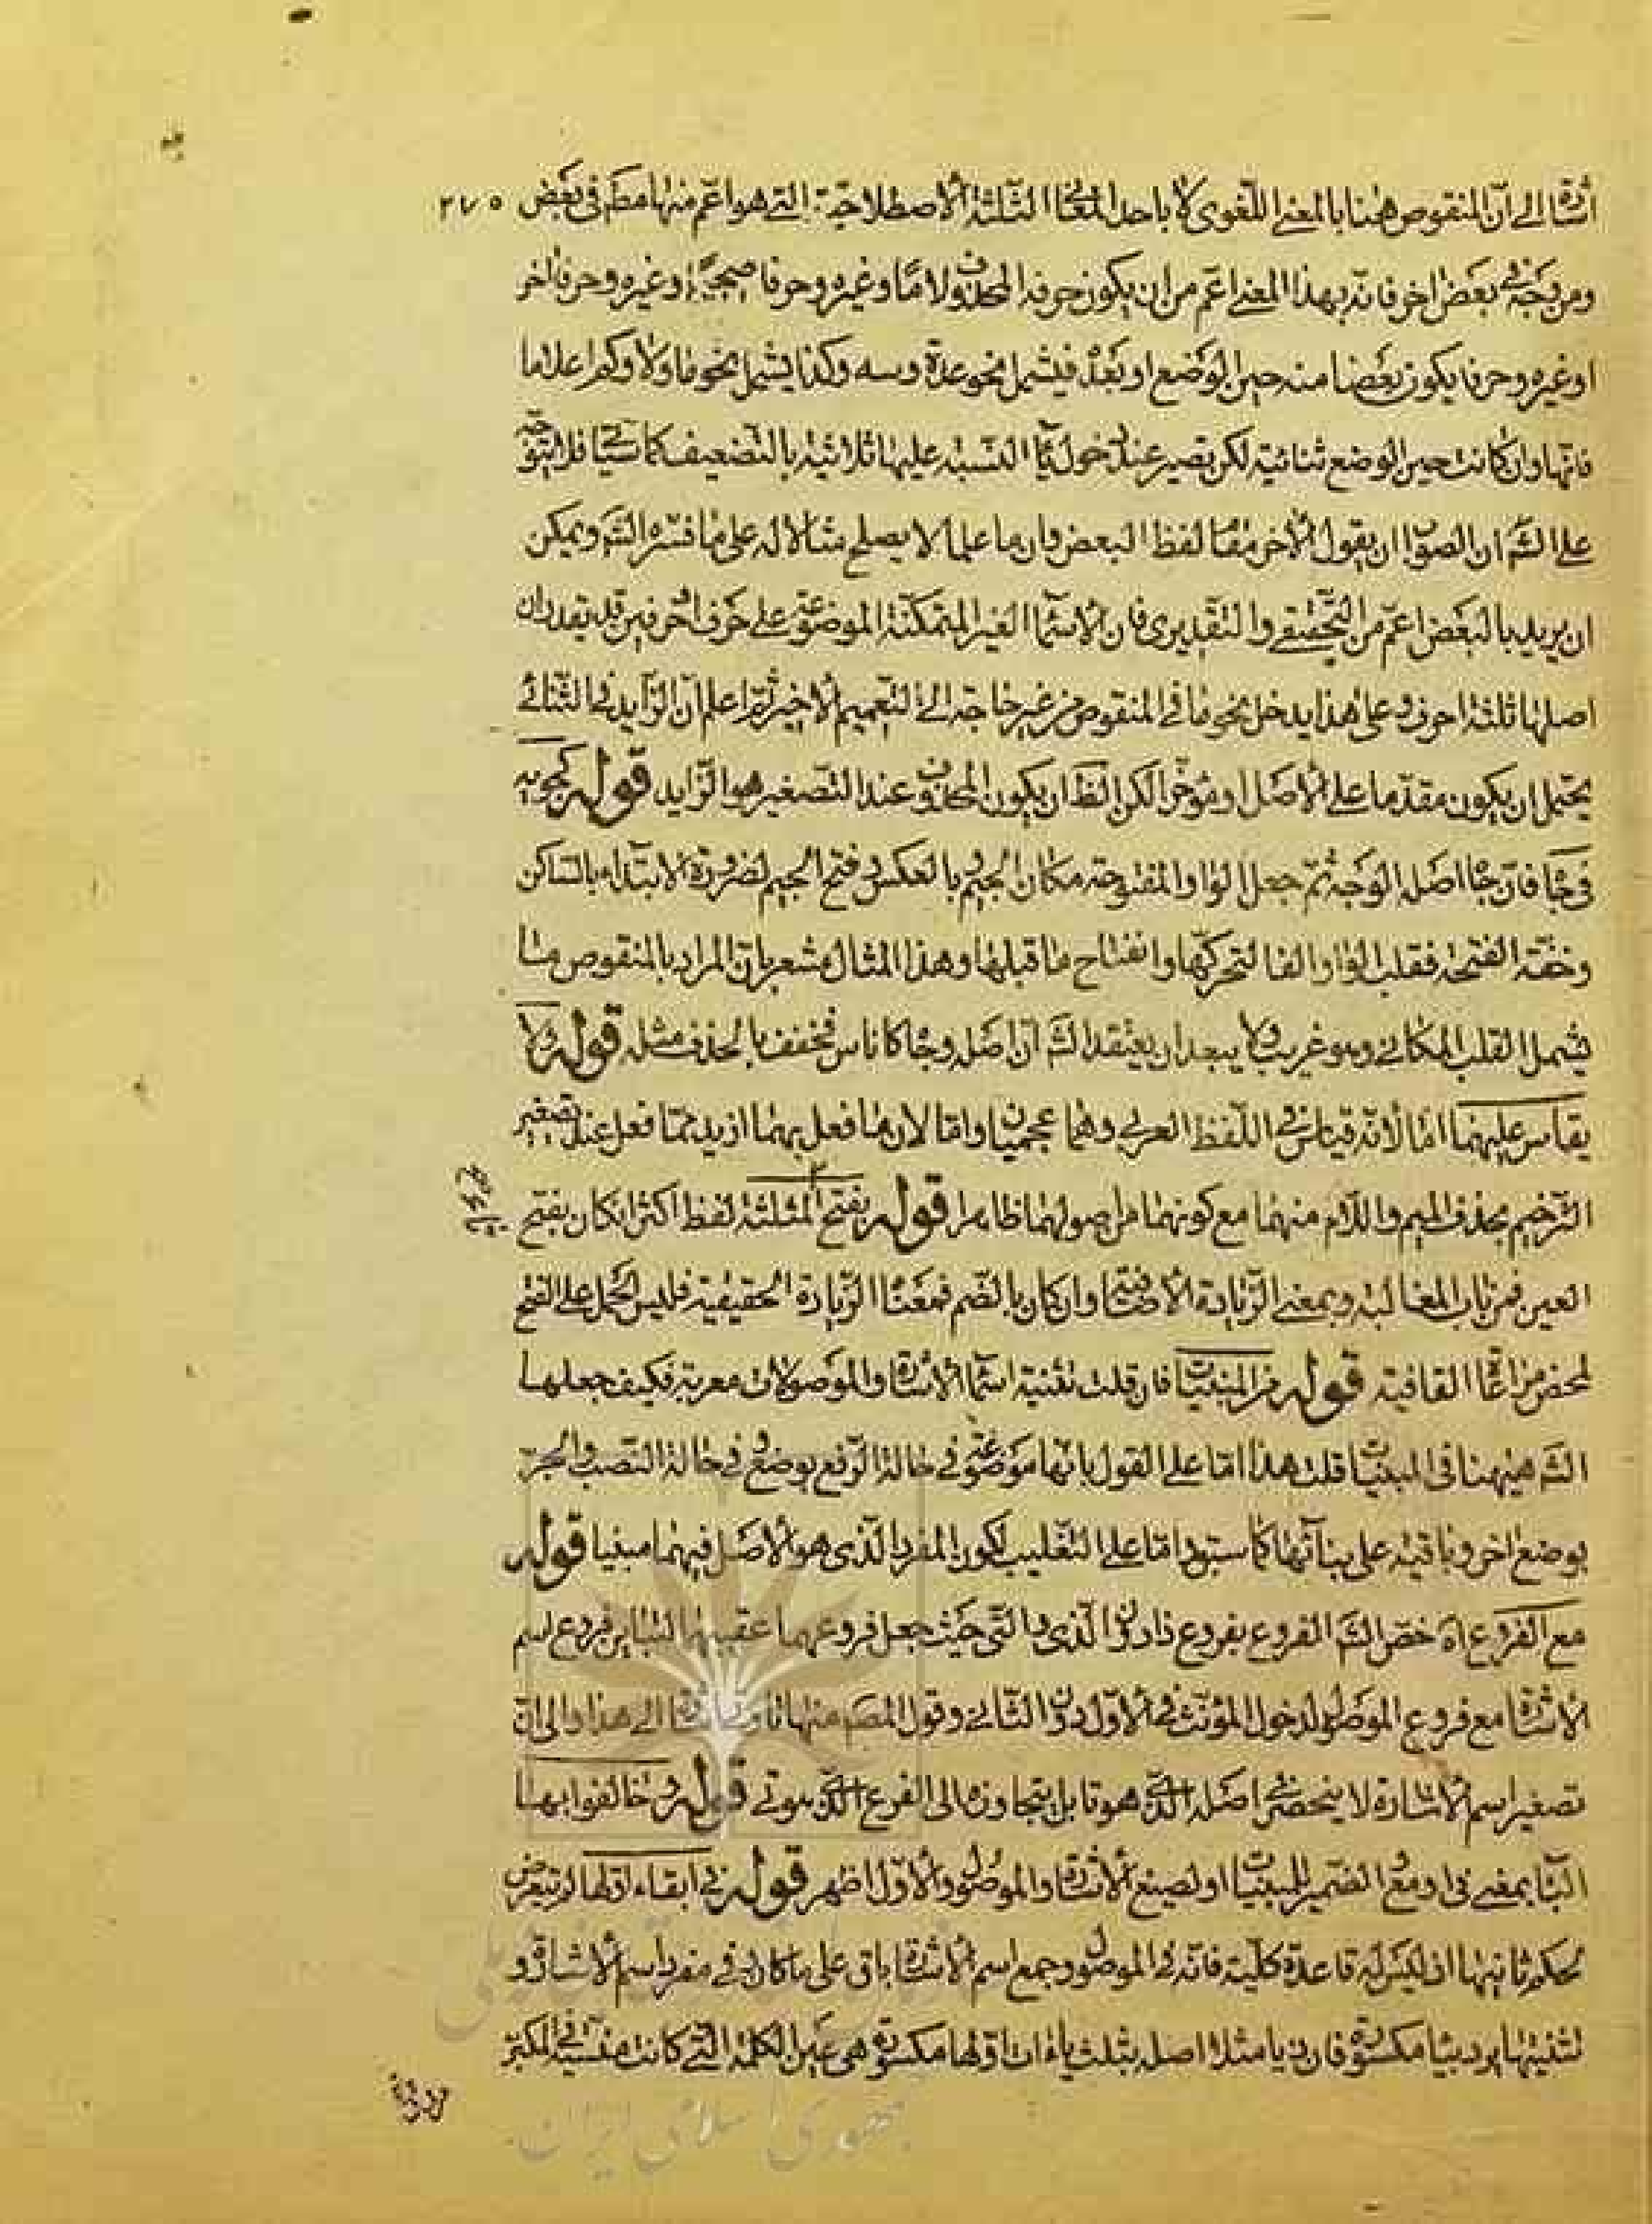 اشارة الى ان المنقوص ههنا بالمعنى اللغوى لا باحد المعانى الثلثة الاصطلاحية التى هو اعم منها مطلقا فى بعض ٢٧٥
ومن وجه فى بعض اخر فانه بهذا المعنى اعم من ان يكون حرفه المحذوف لاما وغيره وحرفا صحيحا وغيره وحرفا اخر
او غيره وحرفا يكون بعضا منه حين الوضع او بعده فيشمل نحو عدة وسه وكذا يشمل نحو ما ولا وكم اعلاما
فانها وان كانت حين الوضع ثنائية لكن تصير عند دخول ياء النسبة عليها ثلاثية بالتضعيف كما سيجئ فلا يتوجه
على الشم ان الصواب ان يقول الاخر مقام لفظ البعض وان ما علما لا يصلح مثالا له على ما فسره الشم ويمكن
ان يريد بالبعض اعم من التحقيقى والتقديرى فان الاسماء الغير المتمكنة الموضوعة على حرف او حرفين قد يقدر ان
اصلها ثلثة احرف وعلى هذا يدخل نحو ما فى المنقوص من غير حاجة الى التعميم الاخير ثم اعلم ان الزايد فى الثنائى
يحتمل ان يكون مقدما على الاصل او مؤخرا لكن الظ ان يكون المحذوف عند التصغير هو الزايد قوله كجويه
فى جاه فان جاه اصله الوجه ثم جعل الواو المفتوحة مكان الجيم وبالعكس وفتح الجيم لضرورة الابتداء بالساكن
وخفة الفتحة فقلب الواو الفا لتحركها وانفتاح ما قبلها وهذا المثال مشعر بان المراد بالمنقوص ما
يشمل القلب المكانى وهو غريب ولا يبعد ان يعتقد الشم ان اصله وجاه كاناس فخفف بالحذف مثله قوله ولا
يقاس عليهما اما لانه قياس فى اللفظ العربى وهما عجميان واما لان ما فعل بهما ازيد مما فعل عند تصغير
الترخيم بحذف الميم واللام منهما مع كونهما من اصولهما ظاهرا قوله بفتح المثلثة لفظ اكثر ان كان بفتح
العين فمن باب المغالبة وبمعنى الزيادة الادعائية وان كان بالضم فمعناه الزيادة الحقيقية فليس الحمل على الفتح
لمحض مراعاة القافية قوله من المبنيات فان قلت تثنية اسماء الاشارة والموصولات معربة فكيف جعلها
الشم ههنا فى المبنيات قلت هذا اما على القول بانها موضوعة فى حالة الرفع بوضع وفى حالة النصب والجر
بوضع اخر وباقية على بنائها كما سبق واما على التغليب لكون المفرد الذى هو الاصل فيهما مبنيا قوله
مع الفروع اه خص الشم الفروع بفروع ذا دون الذى والتى حيث جعل فروعهما عقيبها لتباين فروع اسم
الاشارة مع فروع الموصول لدخول المؤنث فى الاول دون الثانى وقول المصم منها تا وتى اشارة الى هذا والى ان
تصغير اسم الاشارة لا ينحصر فى اصله الذى هو تا بل يتجاوز الى الفرع الذى هو تى قوله وخالفوا بها
الباء بمعنى فى او مع والضمير للمبنيات او لصيغ الاشارة والموصول والاول اظهر قوله فى ابقاء اولها لم يتعرض
لحكم ثانيها اذ ليس له قاعدة كلية فانه فى الموصول وجمع اسم الاشارة باق على ما كان وفى مفرد اسم الاشارة و
تثنيتها يرد بياء مكسورة فان ذيا مثلا اصله بثلث ياءات اولها مكسورة هى عين الكلمة التى كانت منقلبة فى المكبر
جمهوری اسلامی ایران